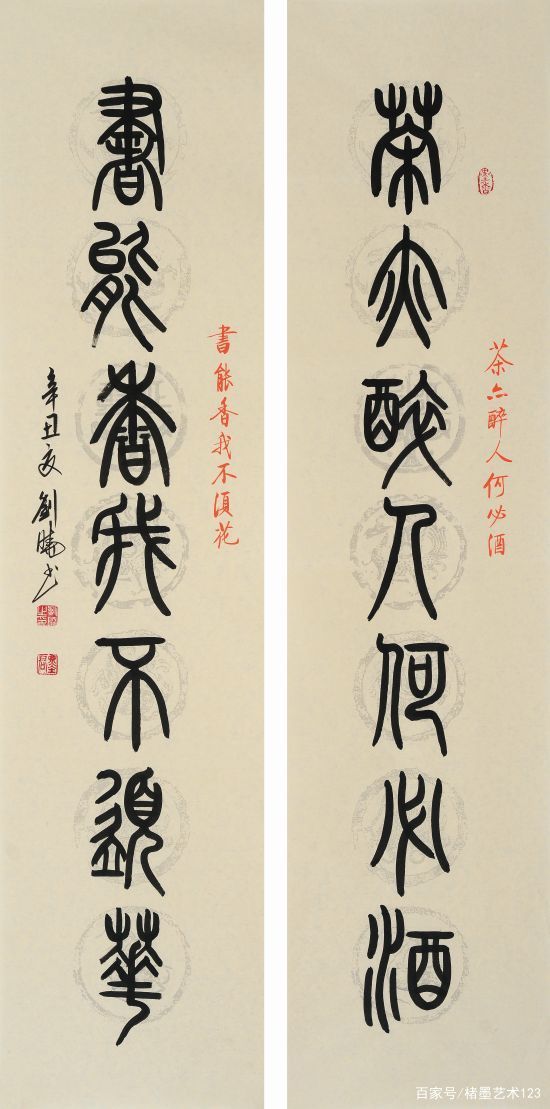 茶亦醉人何必酒
茶亦醉人何必酒
書能香我不須華
書能香我不須花
辛丑夏劉曉書
百家号/楮墨艺术123